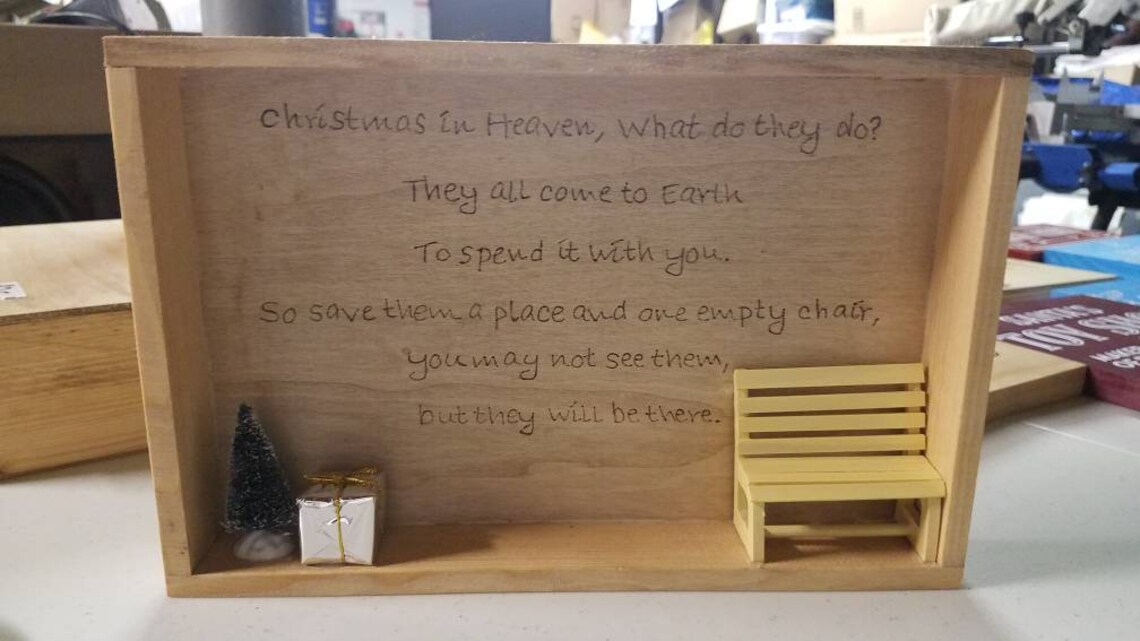 Christmas in Heaven, What do they do?
They all come to Earth
To spend it with you.
So save them a place and one empty chair,
you may not see them,
but they will be there.